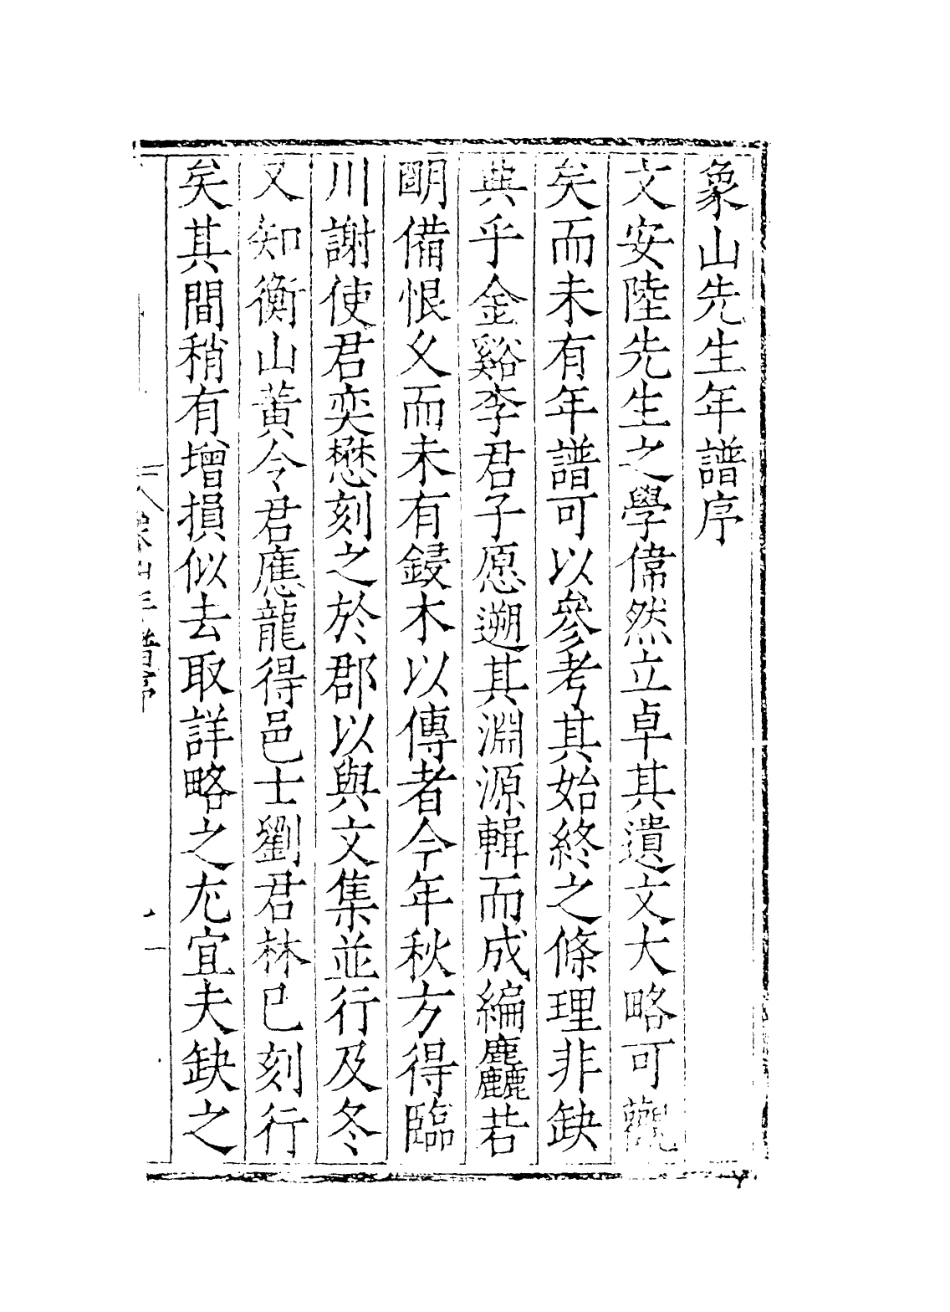 象山先生年譜序
文安陸先生之學偉然立卓其遺文大略可觀
矣而未有年譜可以參考其始終之條理非缺
典乎金谿李君子愿遡其淵源輯而成編麤若
明備恨久而未有鋟木以傳者今年秋方得臨
川謝使君奕懋刻之於郡以與文集並行及冬
又知衡山黃令君應龍得邑士劉君林已刻行
矣其間稍有增損似去取詳略之尤宜夫缺之
象山年譜序
一